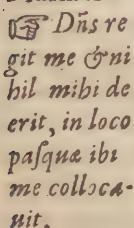 ☞ Dñs re
git me & ni
hil mihi de
erit, in loco
paſquæ ibi
me colloca-
uit,